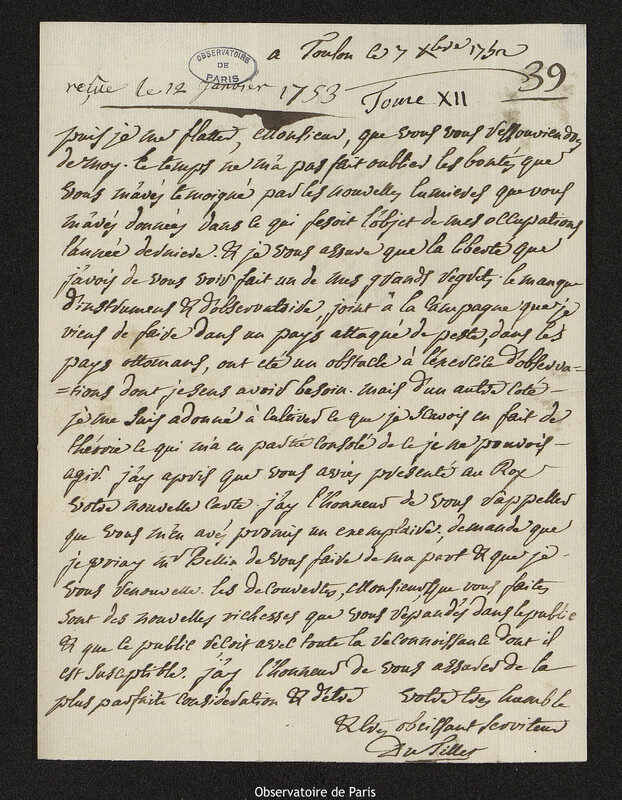 OBSERVATOIRE
DE
PARIS
a Toulon le 7 Xbre 1752
39
reçüe le 12 janvier 1753
Tome XII
puis je me flatter, Monsieur, que vous vous ressouviendrez
de moy. le temps ne m'a pas fait oublier les bontez que
vous m'avés temoigné par les nouvelles lumieres que vous
m'avés données dans ce qui fesoit l'objet de mes occupations
l'année derniere. & je vous assure que la liberté que
j'avois de vous voir fait un de mes grands regrets. le manque
d'instrumens & d'observatoire, joint à la campagne que je
viens de faire dans un pays attaqué de peste, dans les
pays ottomans, ont eté un obstacle à l'exercice d'observa=
=tions dont je sens avoir besoin. mais d'un autre coté
je me suis adonné à cultiver ce que je scavois en fait de
théorie ce qui m'a en partie consolé de ce je ne pouvois
agir. j'ay apris que vous aviés présenté au Roy
votre nouvelle carte. j'ay l'honneur de vous rappeller
que vous m'en avés promis un exemplaire, demande que
je priay mr Bellin de vous faire de ma part & que je
vous renouvelle. les decouvertes, Monsieur, que vous faites
sont des nouvelles richesses que vous repandés dans le public
& que le public recoit avec toute la reconnoissance dont il
est susceptible. j'ay l'honneur de vous assurer de la
plus parfaite consideration & d'etre votre tres humble
& tres obeissant serviteur
Du Tillet
Observatoire de Paris